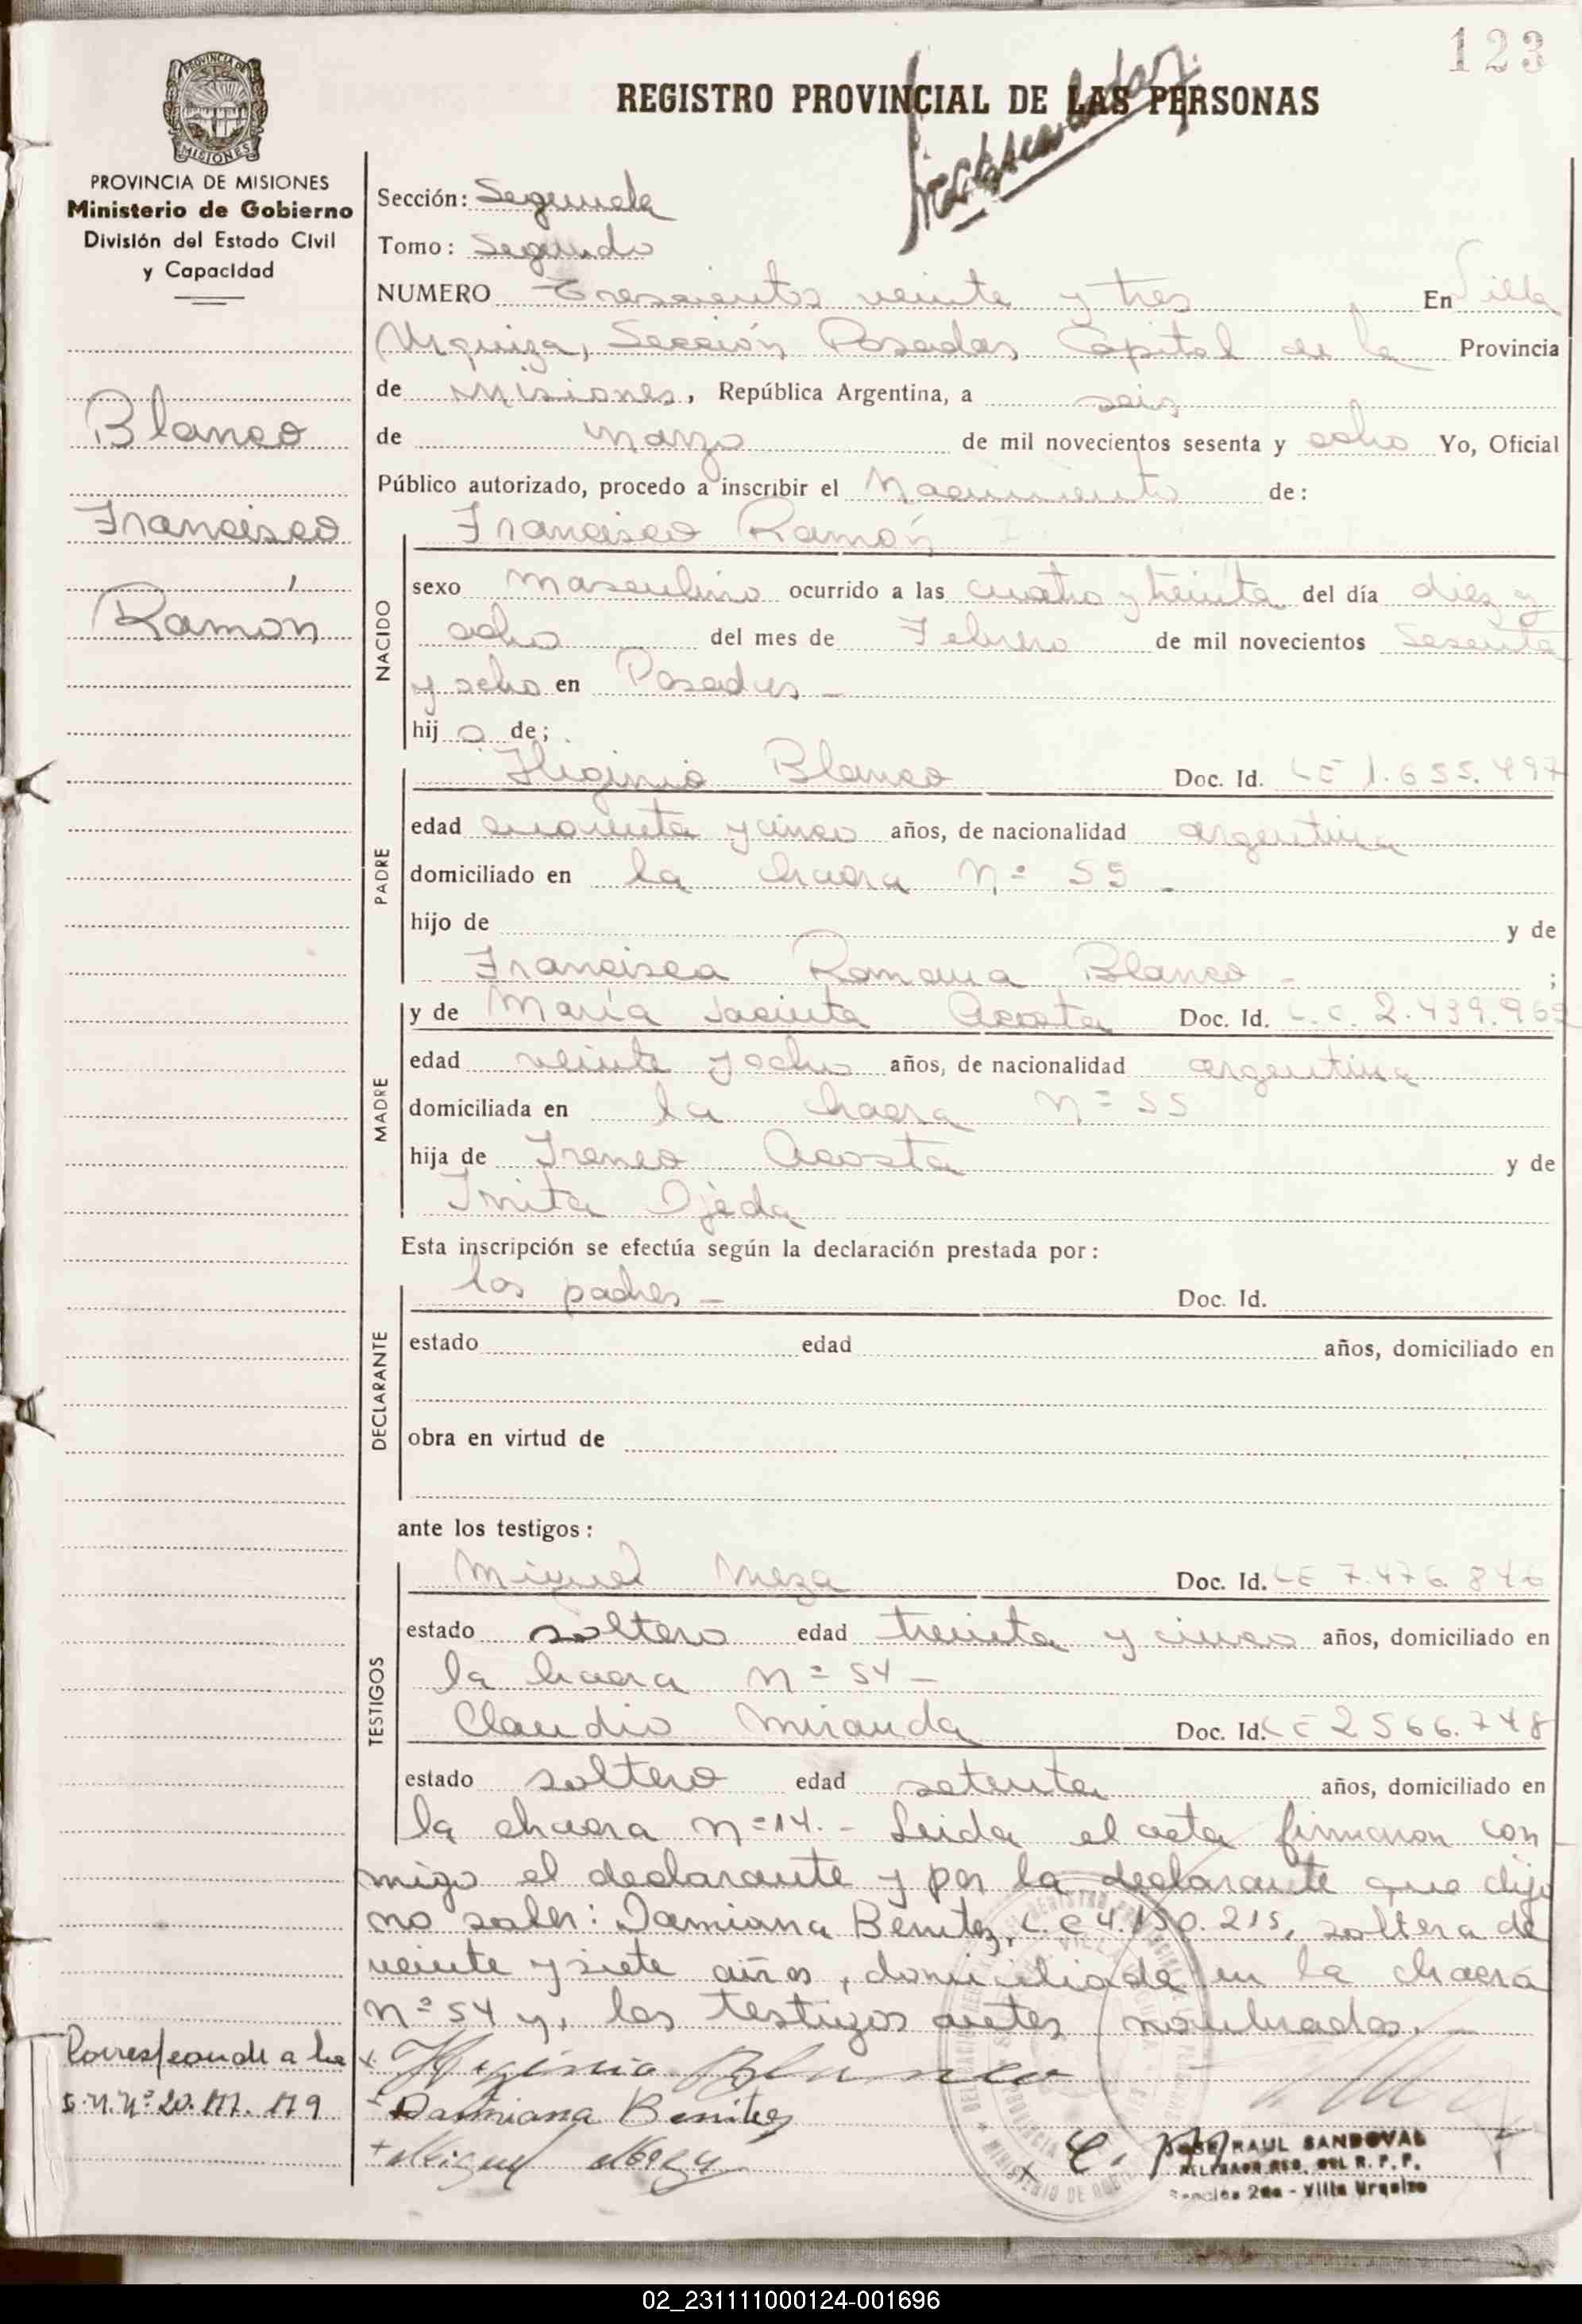 123
REGISTRO PROVINCIAL DE LAS PERSONAS
PROVINCIA DE MISIONES
Ministerio de Gobierno
División del Estado Civil
y Capacidad
Blanco
Francisco
Ramón
Sección: Segunda
Tomo: Segundo
NUMERO Trescientos veinte y tres En Villa
Urquiza, Sección Posadas Capital de la Provincia
de Misiones, República Argentina, a seis
de marzo de mil novecientos sesenta y ocho Yo, Oficial
Público autorizado, procedo a inscribir el Nacimiento de:
Francisco Ramón
NACIDO
sexo masculino ocurrido a las cuatro y treinta del día diez y
ocho del mes de Febrero de mil novecientos sesenta
y ocho en Posadas -
hij o de;
PADRE
Higinio Blanco Doc. Id. LE 1.655.497
edad cuarenta y cinco años, de nacionalidad argentina
domiciliado en la chacra Nº 55 -
hijo de y de
Francisca Romana Blanco - ;
MADRE
y de María Jacinta Acosta Doc. Id. L.C. 2.439.969
edad veinte y ocho años, de nacionalidad argentina
domiciliada en la chacra Nº 55
hija de Ireneo Acosta y de
Ojeda
Esta inscripción se efectúa según la declaración prestada por:
DECLARANTE
los padres - Doc. Id.
estado edad años, domiciliado en
obra en virtud de
ante los testigos:
TESTIGOS
Miguel Meza Doc. Id. LE 7.476.846
estado soltero edad treinta y cinco años, domiciliado en
la chacra Nº 54 -
Claudio Miranda Doc. Id. LE 2566.748
estado soltero edad setenta años, domiciliado en
la chacra Nº 14. - Leida el acta firmaron con
migo el declarante y por la declarante que dijo
no saber: Damiana Benitez, L.C 4.150.215, soltera de
veinte y siete años, domiciliada en la chacra
Nº 54 y, los testigos antes nombrados.
Corresponde a la
Higinio Blanco
Damiana Benitez
Miguel Meza
JOSE RAUL SANDOVAL
Sección 2da - Villa Urquiza
02_231111000124-001696